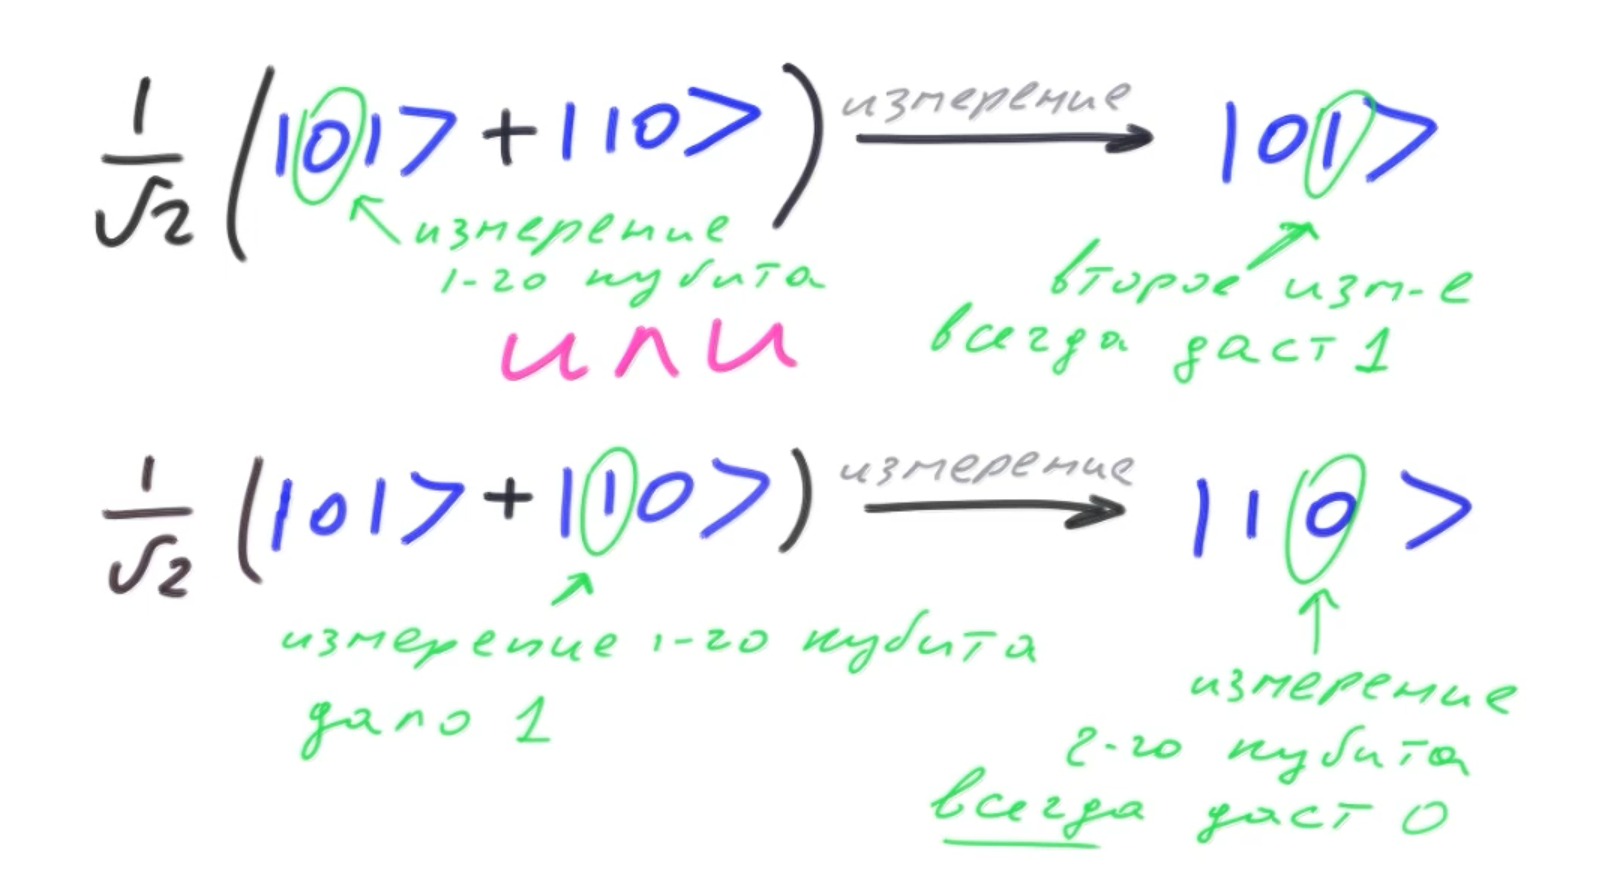 1/√2 (|01> + |10>) измерение |01>
измерение
1-го кубита
второе изм-е
всегда даст 1
или
1/√2 (|01> + |10>) измерение |10>
измерение 1-го кубита
дало 1
измерение
2-го кубита
всегда даст 0